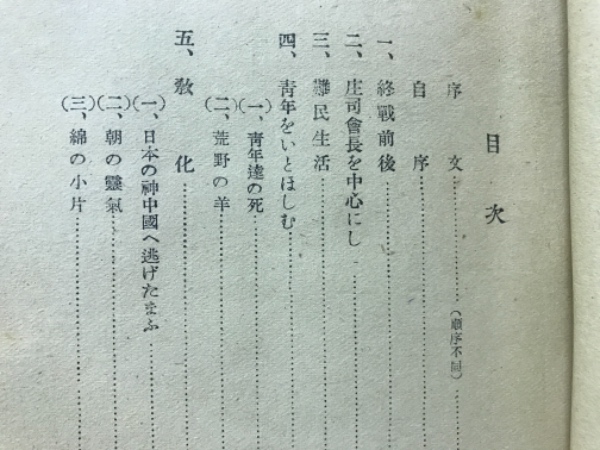 目次
序文……………………(順序不同)……
自序……………………
一、終戰前後……………………
二、庄司會長を中心にし……………………
三、難民生活……………………
四、靑年をいとほしむ……………………
(一)、靑年達の死……………………
(二)、荒野の羊……………………
五、敎化……………………
(一)、日本の神中國へ逃げたまふ……………………
(二)、朝の靈氣……………………
(三)、綿の小片……………………